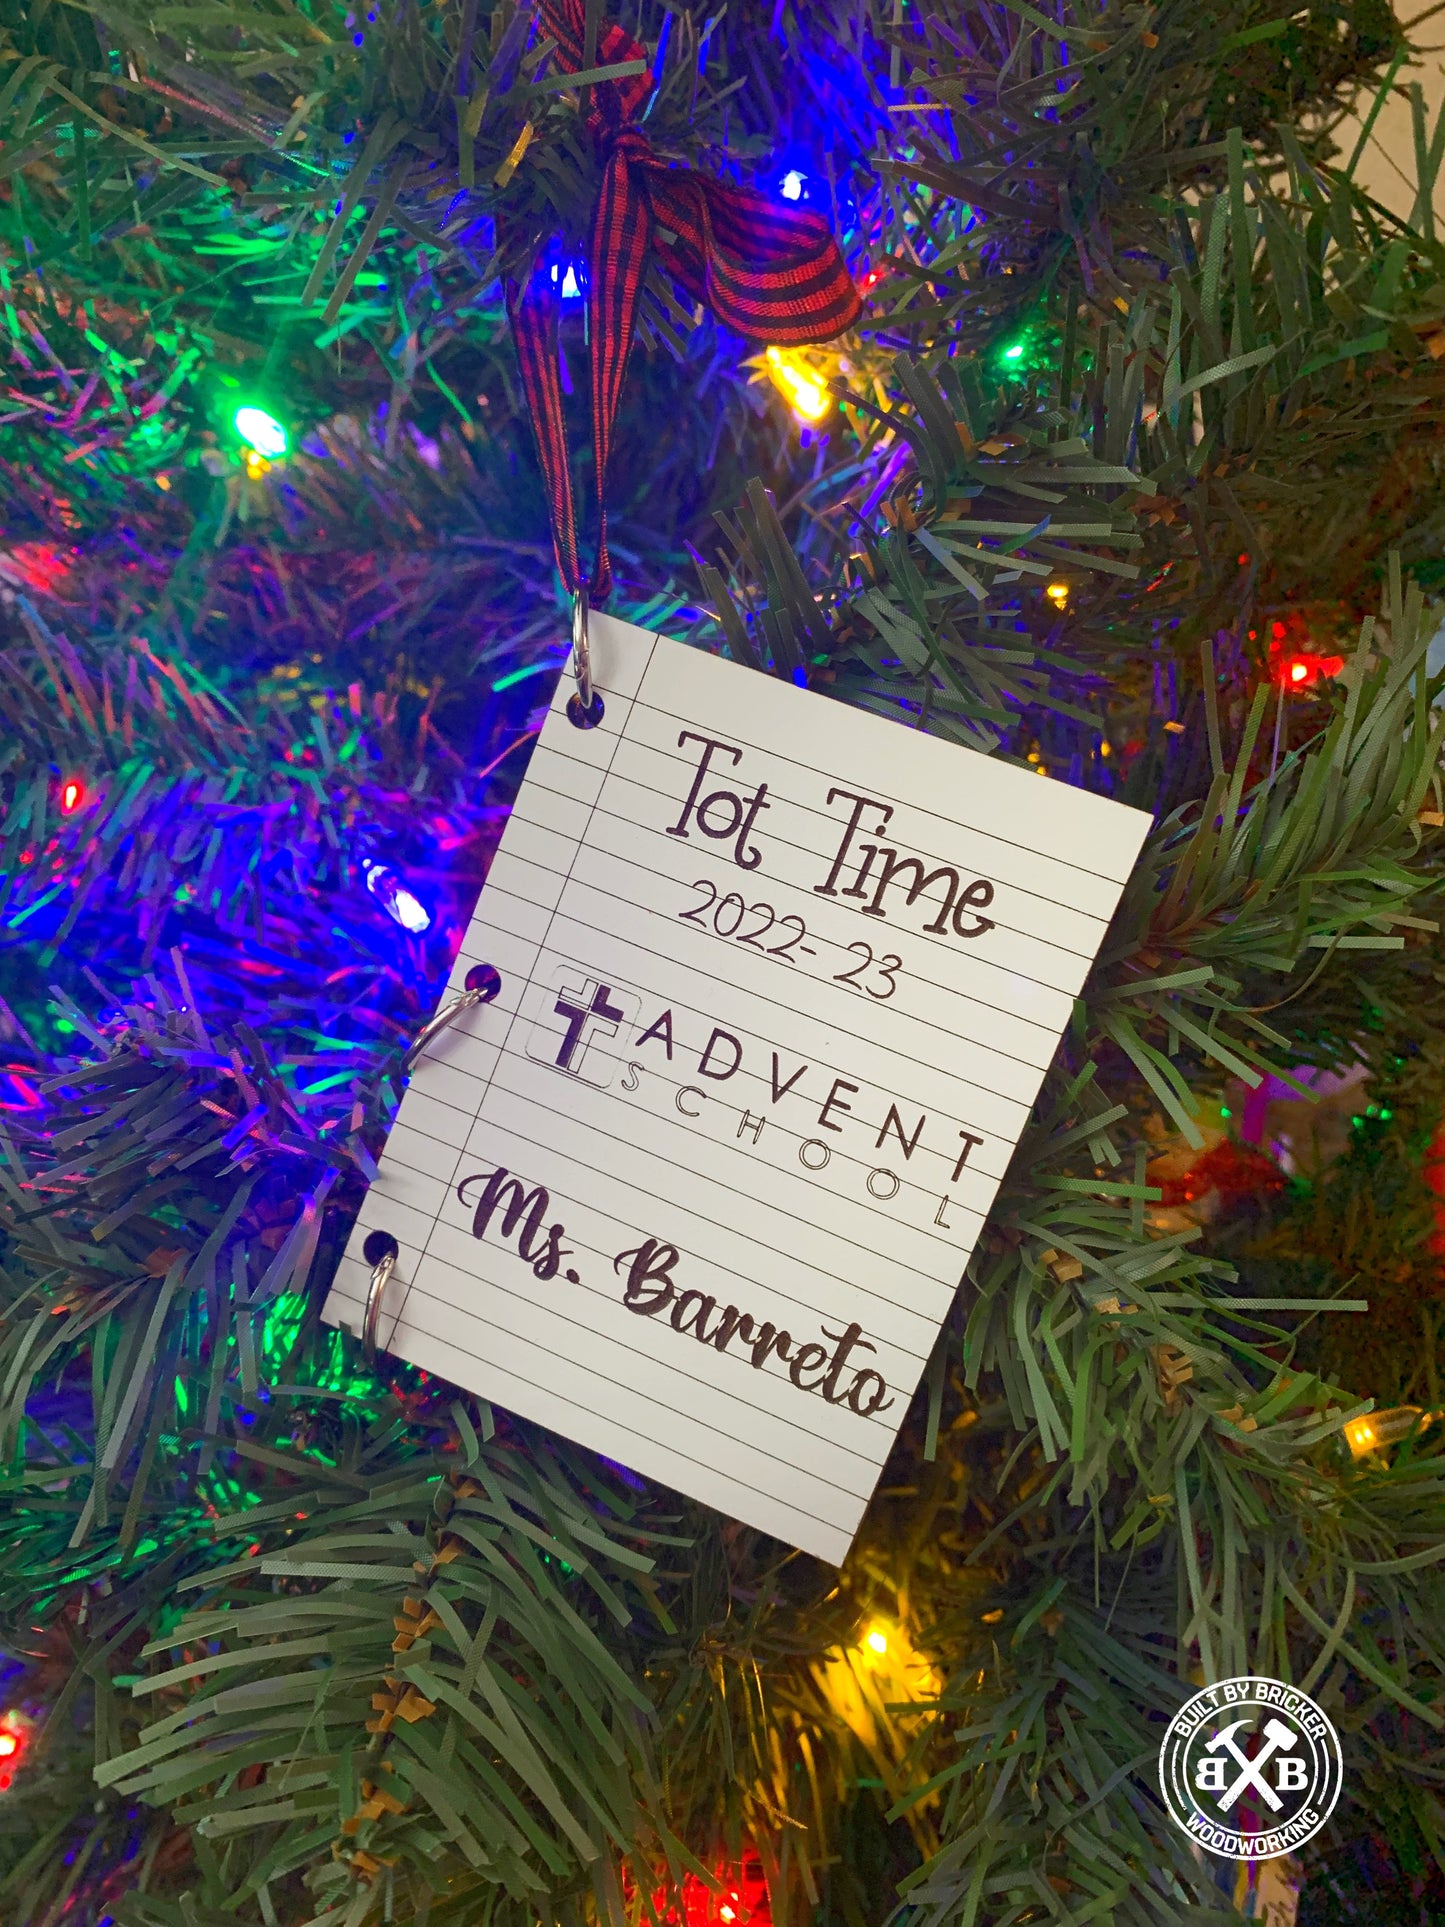 Tot Time
2022-23
ADVENT
SCHOOL
Ms. Barreto
BUILT BY BRICKER
BXB
WOODWORKING